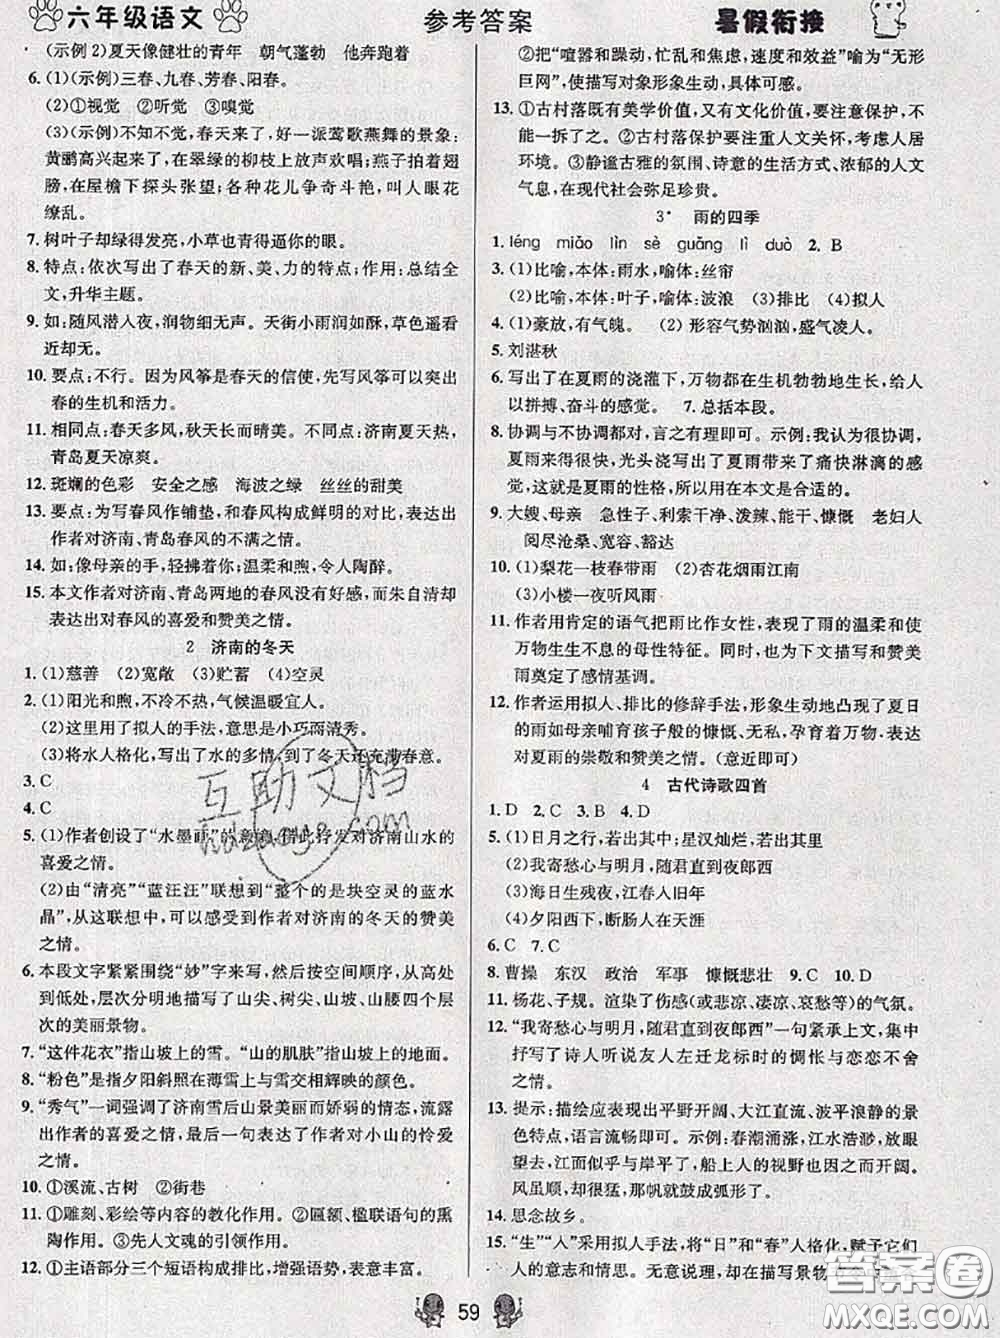 六年级语文
参考答案
暑假衔接
(示例2)夏天像健壮的青年　朝气蓬勃　他奔跑着
6. (1)(示例)三春、九春、芳春、阳春。
(2)①视觉　②听觉　③嗅觉
(3)(示例)不知不觉,春天来了,好一派莺歌燕舞的景象:
黄鹂高兴起来了,在翠绿的柳枝上放声欢唱;燕子拍着翅
膀,在屋檐下探头张望;各种花儿争奇斗艳,叫人眼花
缭乱。
7. 树叶子却绿得发亮,小草也青得逼你的眼。
8. 特点:依次写出了春天的新、美、力的特点;作用:总结全
文,升华主题。
9. 如:随风潜入夜,润物细无声。天街小雨润如酥,草色遥看
近却无。
10. 要点:不行。因为风筝是春天的信使,先写风筝可以突出
春的生机和活力。
11. 相同点:春天多风,秋天长而晴美。不同点:济南夏天热,
青岛夏天凉爽。
12. 斑斓的色彩　安全之感　海波之绿　丝丝的甜美
13. 要点:为写春风作铺垫,和春风构成鲜明的对比,表达出
作者对济南、青岛春风的不满之情。
14. 如:像母亲的手,轻拂着你;温柔和煦,令人陶醉。
15. 本文作者对济南、青岛两地的春风没有好感,而朱自清却
表达出对春风的喜爱和赞美之情。
2　济南的冬天
1. (1)慈善　(2)宽敞　(3)贮蓄　(4)空灵
2. (1)阳光和煦,不冷不热,气候温暖宜人。
(2)这里用了拟人的手法,意思是小巧而清秀。
(3)将水人格化,写出了水的多情,到了冬天还充满春意。
3. C
4. C
5. (1)作者创设了“水墨画”的意境,借此抒发对济南山水的
喜爱之情。
(2)由“清亮”“蓝汪汪”联想到“整个的是块空灵的蓝水
晶”,从这联想中,我们可以感受到作者对济南的冬天的赞美
之情。
6. 本段文字紧紧围绕“妙”字来写,然后按空间顺序,从高
到低处,层次分明地描写了山尖、树尖、山坡、山腰四个层
次的美丽景物。
7. “这件花衣”指山坡上的雪。“山的肌肤”指山坡上的地面。
8. “粉色”是指夕阳斜照在薄雪上与雪交相辉映的颜色。
9. “秀气”一词强调了济南雪后山景美丽而娇弱的情态,流露
出作者的喜爱之情。最后一句表达了作者对小山的怜爱
之情。
10. ①溪流、古树　②街巷
11. ①雕刻、彩绘等内容的教化作用。②匾额、楹联语句的熏
陶作用。③先人文魂的引领作用。
12. ①主语部分三个短语构成排比,增强语势,表意丰富。
②把“喧嚣和躁动,忙乱和焦虑,速度和效益”喻为“无形
巨网”,使描写对象形象生动,具体可感。
13. ①古村落既有美学价值,又有文化价值,要注意保护,不
能一拆了之。②古村落保护要注重人文关怀,考虑人居
环境。③静谧古雅的氛围、诗意的生活方式、浓郁的人文
气息,在现代社会弥足珍贵。
3*　雨的四季
1. léng　miǎo　lìn　sè　guāng　lì　duò　2. B
3. (1)比喻,本体:雨水,喻体:丝帘
(2)比喻,本体:叶子,喻体:波浪　(3)排比　(4)拟人
4. (1)豪放,有气魄。　(2) 形容气势汹汹,盛气凌人。
5. 刘湛秋
6. 写出了在夏雨的浇灌下,万物都在生机勃勃地生长,给人
以拼搏、奋斗的感觉。　7. 总括本段。
8. 协调与不协调都对,言之有理即可。示例:我认为很协调,
夏雨来得很快,光头浇写出了夏雨带来了痛快淋漓的感
觉,这就是夏雨的性格,所以用在本文是合适的。
9. 大嫂、母亲　急性子、利索干净、泼辣、能干、慷慨　老妇人
阅尽沧桑、宽容、豁达
10. (1)梨花一枝春带雨　(2)杏花烟雨江南
(3)小楼一夜听风雨
11. 作者用肯定的语气把雨比作女性,表现了雨的温柔和使
万物生生不息的母性特征。同时,也为下文描写和赞美
雨奠定了感情基调。
12. 作者运用拟人、排比的修辞手法,形象生动地凸现了夏日
的雨如母亲哺育孩子般的慷慨、无私,孕育着万物·表达
对夏雨的崇敬和赞美之情。(意近即可)
4　古代诗歌四首
1. D　2. C　3. B　4. D
5. (1)日月之行,若出其中;星汉灿烂,若出其里
(2)我寄愁心与明月,随君直到夜郎西
(3)海日生残夜,江春入旧年
(4)夕阳西下,断肠人在天涯
6. C　7. C
8. 曹操　东汉　政治　军事　慷慨悲壮　9. C　10. D
11. 杨花、子规。渲染了伤感(或悲凉、凄凉、哀愁等)的气氛。
12. “我寄愁心与明月,随君直到夜郎西”一句紧承上文,集中
抒写了诗人听说友人左迁龙标时的惆怅与恋恋不舍
之情。
13. 提示:描绘应表现出平野开阔、大江直流、波平浪静的景
色特点,语言流畅即可。示例:春潮涌涨,江水浩渺,放眼
望去,江面似乎与岸平了,船上人的视野也因之开阔。
风虽顺,却很猛,那帆就成弧形了。
14. 思念故乡。
15. “生”“入”采用拟人手法,将“日”和“春”人格化,赋予它们
人的意志和情思。无意说理,却在描写景物
59
互助文档
hdzuoye.com
答案圈
MXQE.COM